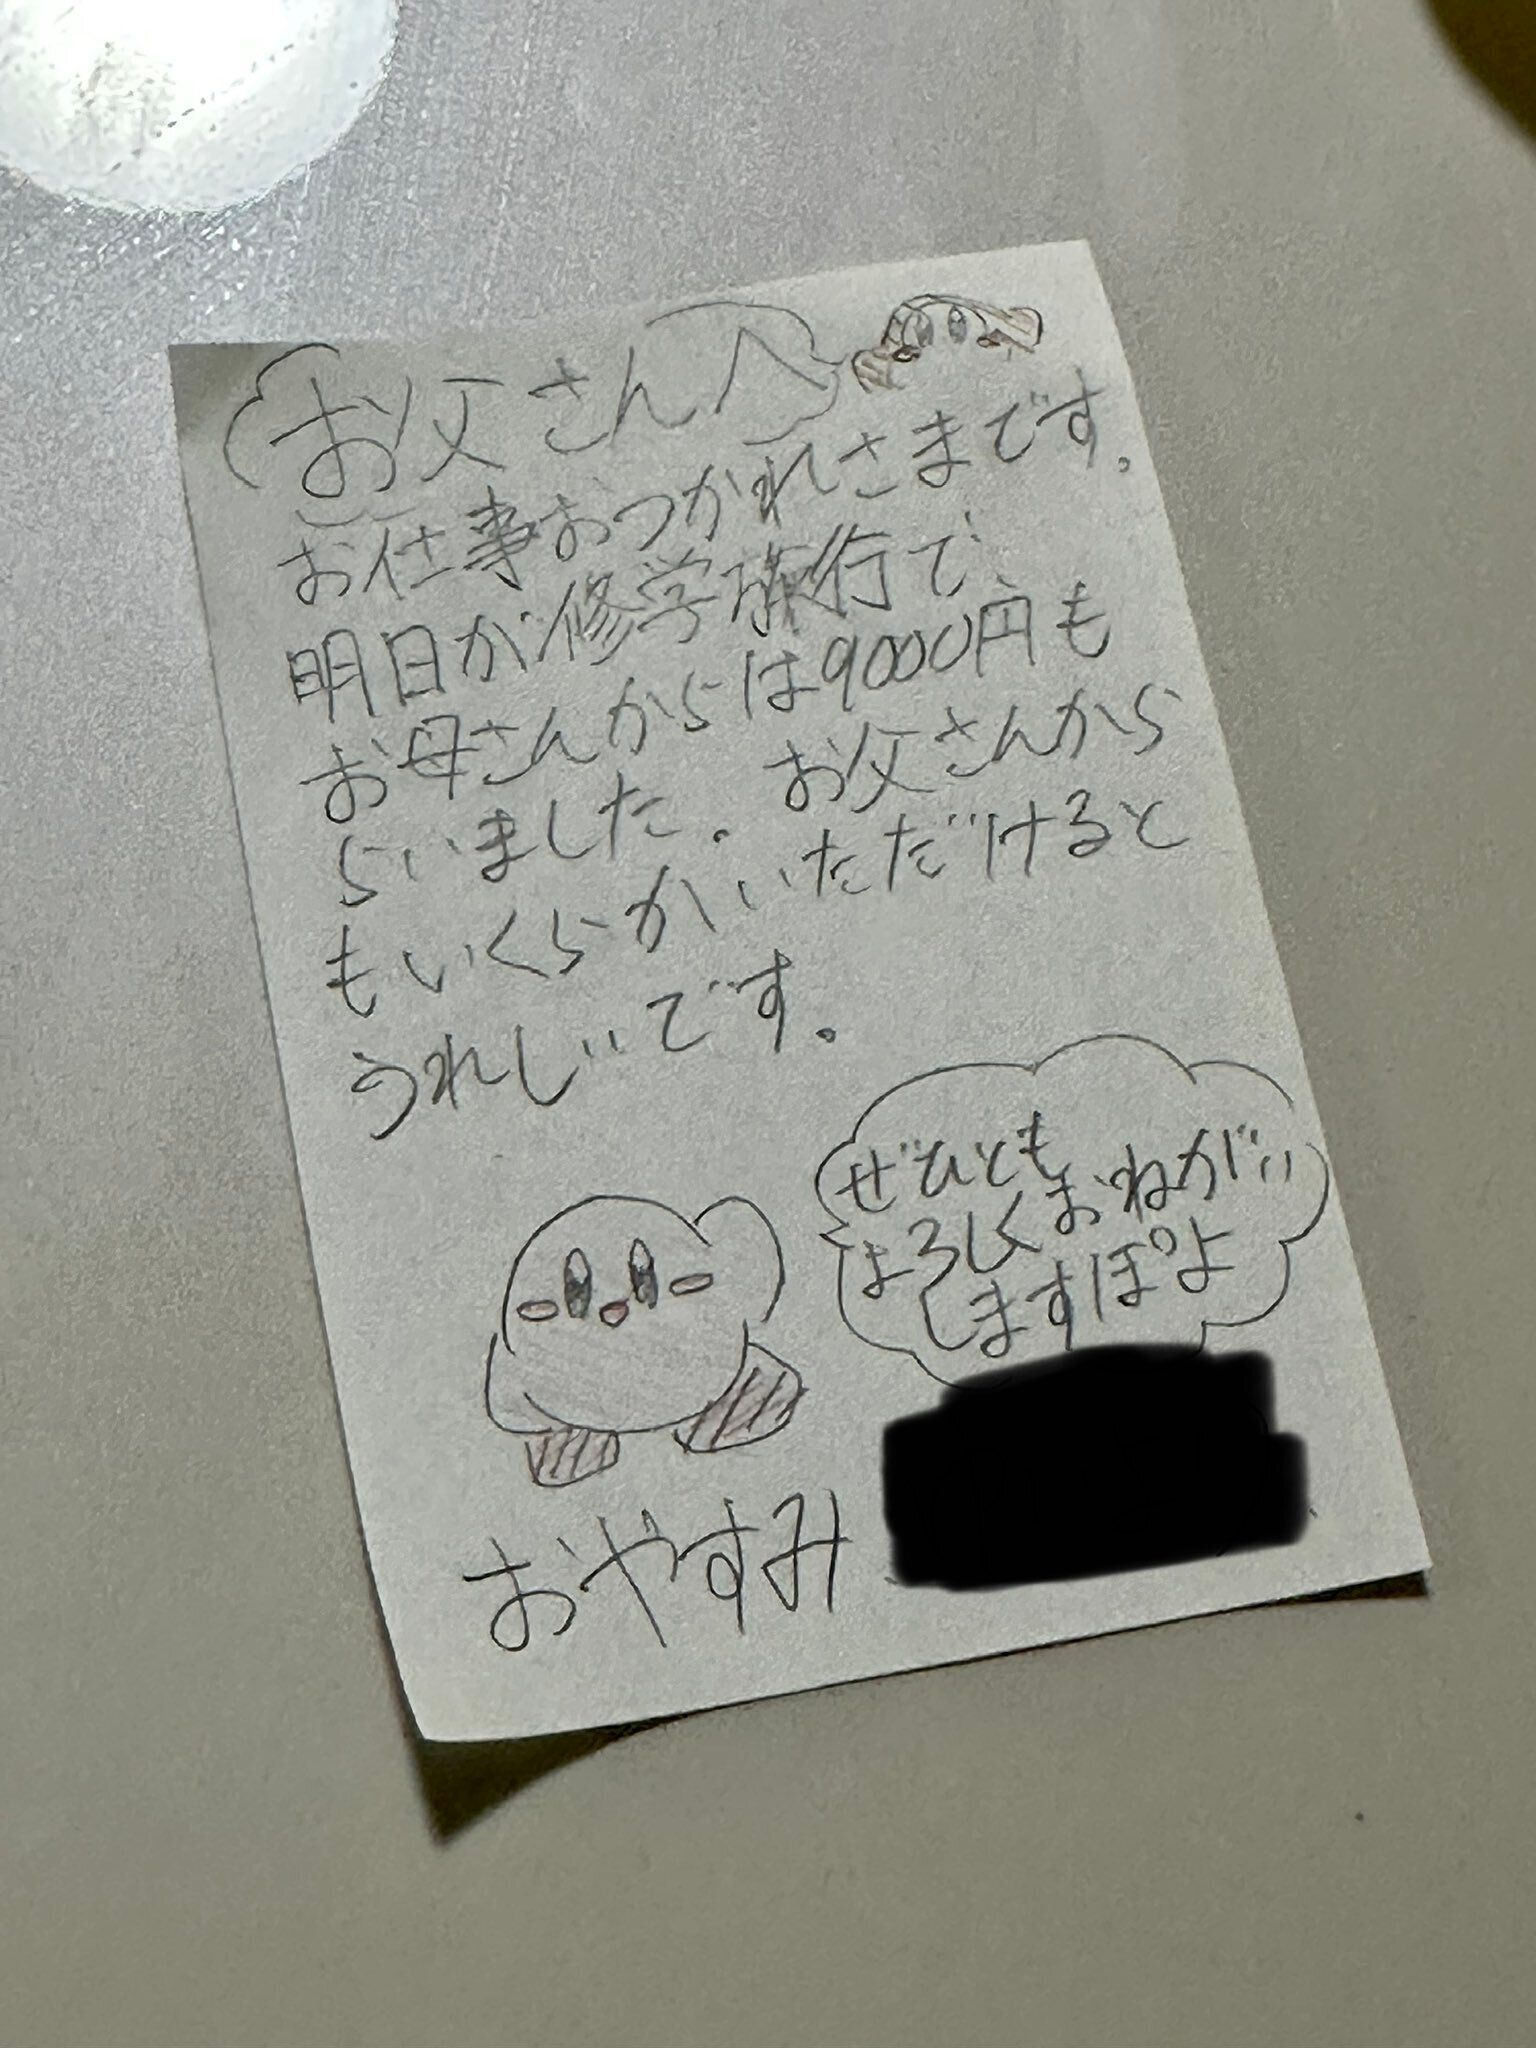 お父さんへ
お仕事おつかれさまです。
明日が修学旅行で、
お母さんからは9000円も
らいました。お父さんから
もいくらかいただけると
うれしいです。
ぜひとも
よろしくおねがい
しますぽよ
おやすみ